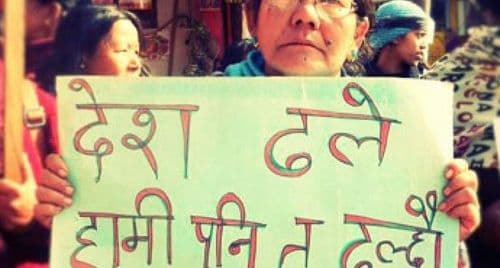 देश ढले
हामी पनि त ढल्छौं